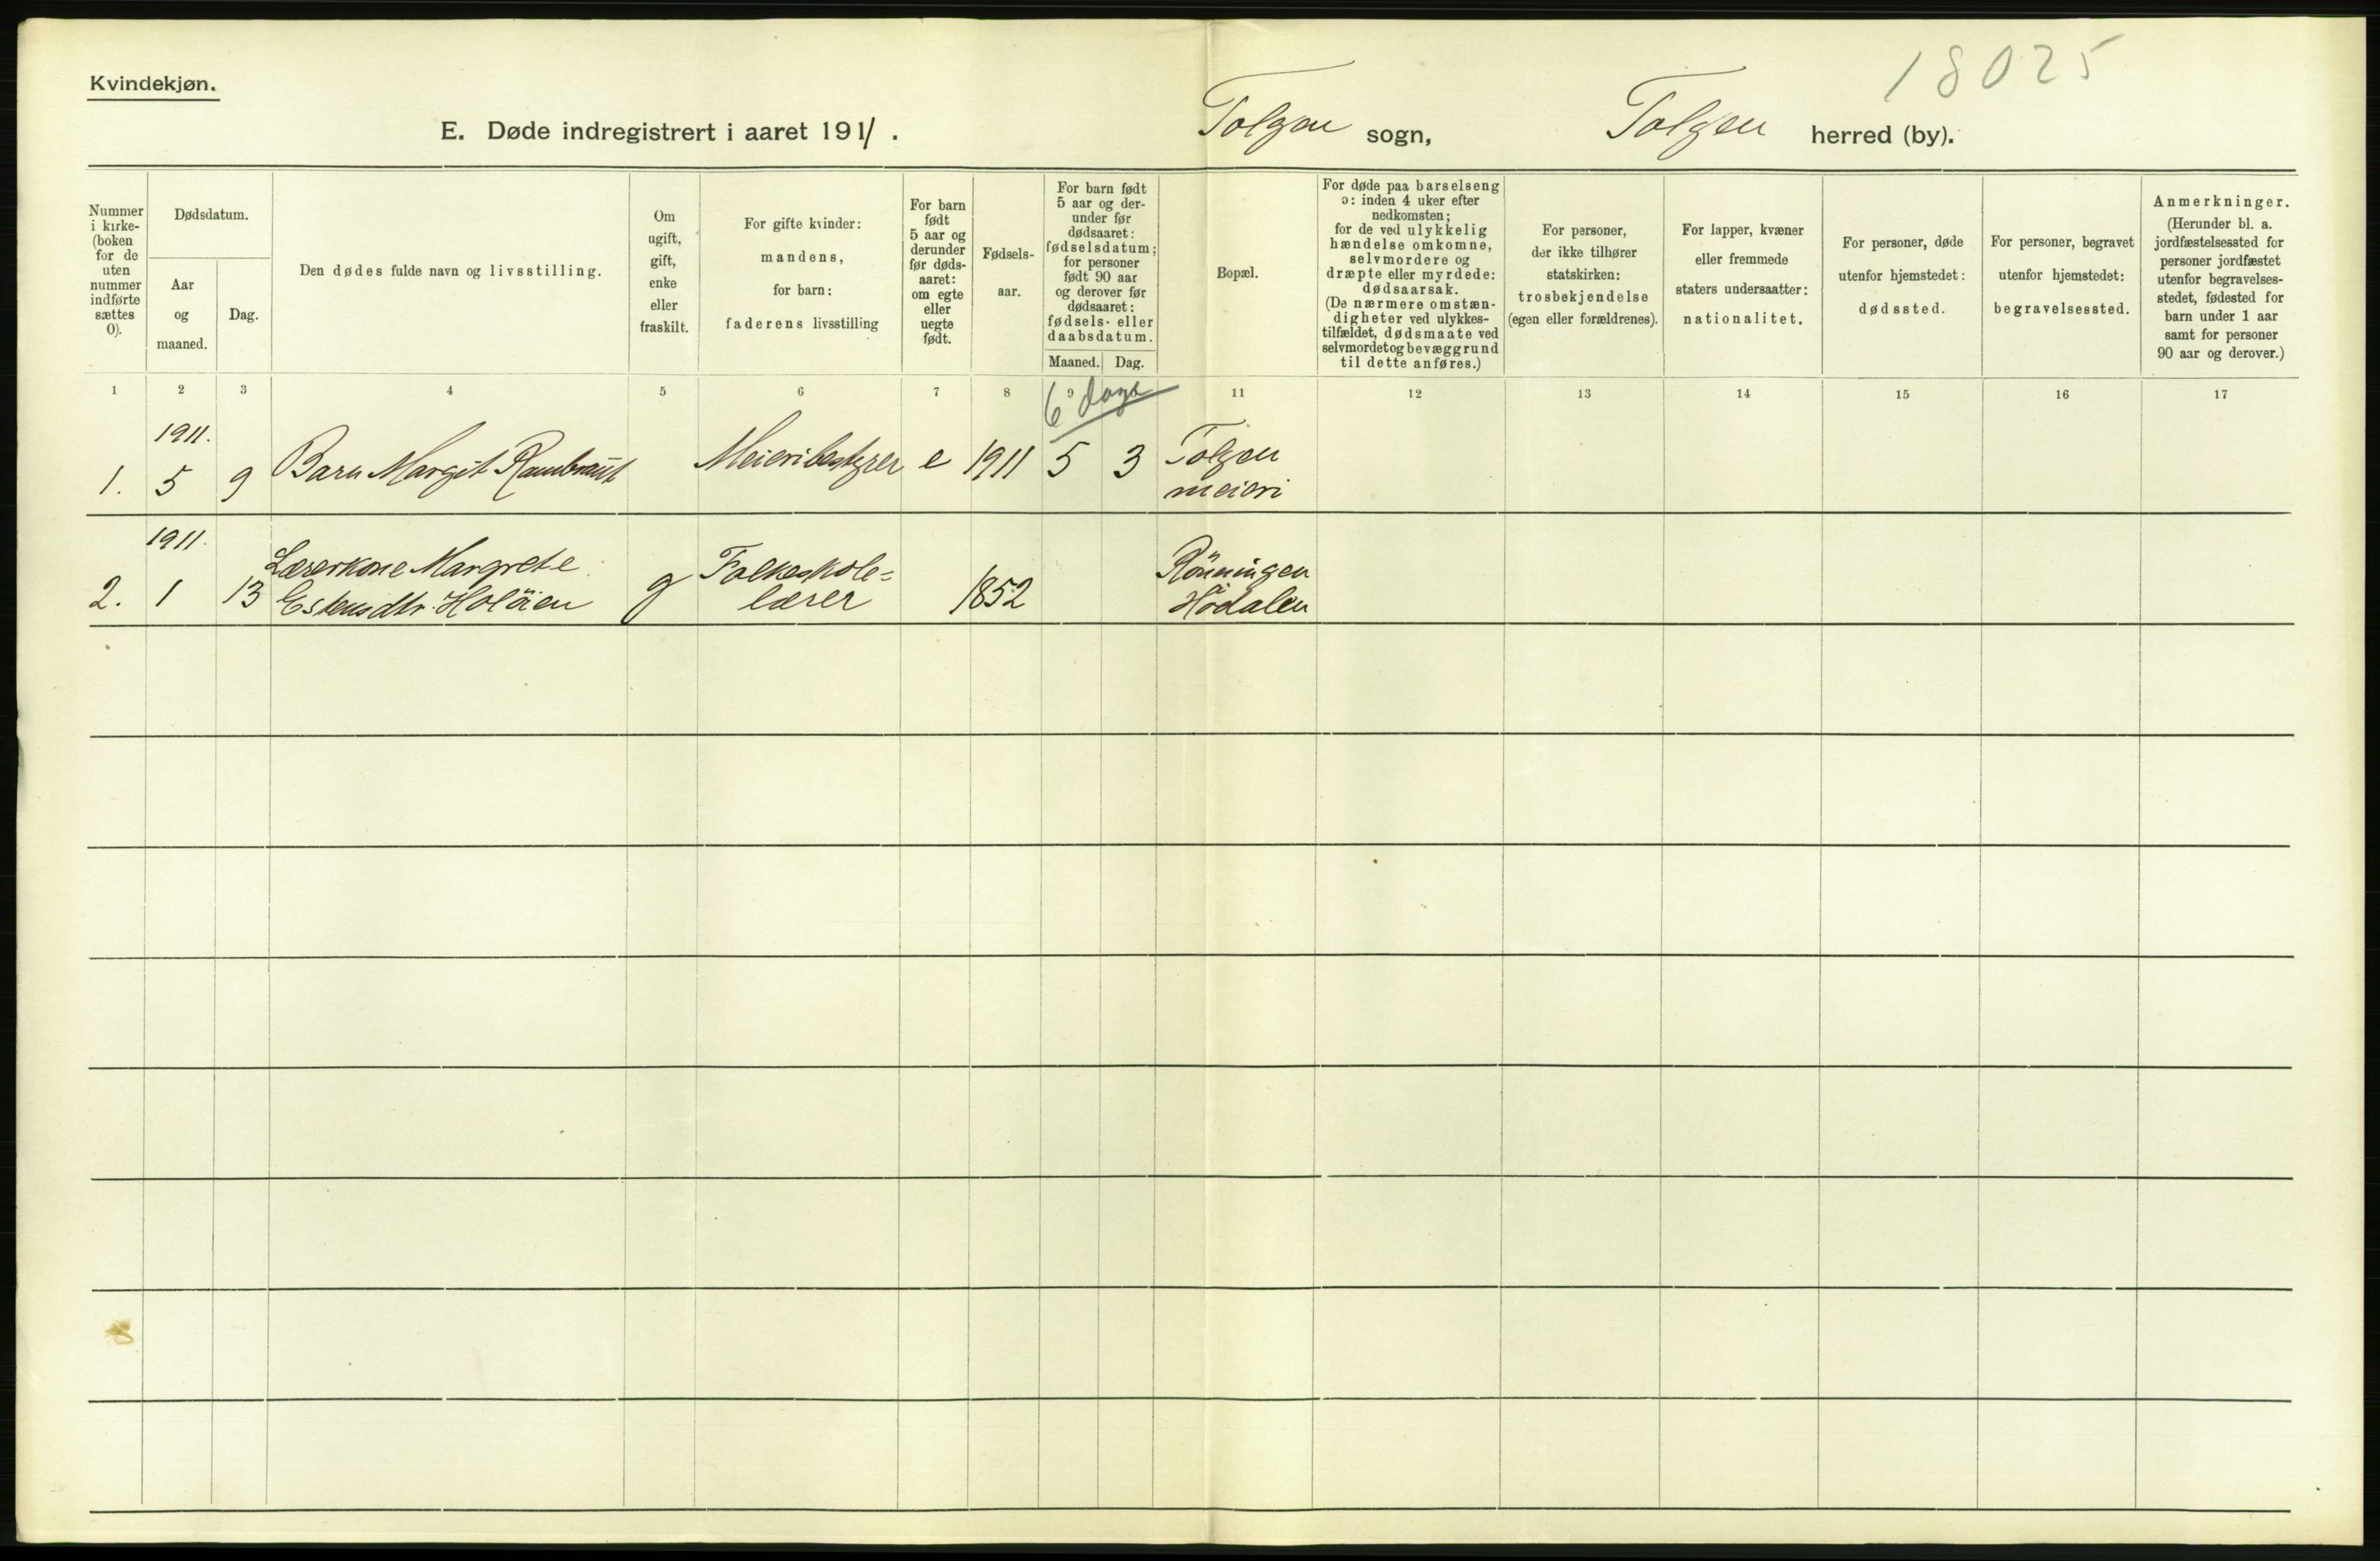 18025
Kvindekjøn.
E. Døde indregistrert i aaret 1911. Tolgen sogn, Tolgen herred (by).
Nummer
i kirke-
(boken
for de
uten
nummer
indførte
sættes
0).
Dødsdatum.
Aar
og
maaned.
Dag.
Den dødes fulde navn og livsstilling.
Om
ugift,
gift,
enke
eller
fraskilt.
For gifte kvinder:
mandens,
for barn:
faderens livsstilling
For barn
født
5 aar og
derunder
før døds-
aaret:
om egte
eller
uegte
født.
Fødsels-
aar.
For barn født
5 aar og der-
under før
dødsaaret:
fødselsdatum;
for personer
født 90 aar
og derover før
dødsaaret:
fødsels- eller
daabsdatum.
Maaned. Dag.
Bopæl.
For døde paa barselseng
ɔ: inden 4 uker efter
nedkomsten;
for de ved ulykkelig
hændelse omkomne,
selvmordere og
dræpte eller myrdede:
dødsaarsak.
(De nærmere omstæn-
digheter ved ulykkes-
tilfældet, dødsmaate ved
selvmordet og bevæggrund
til dette anføres.)
For personer,
der ikke tilhører
statskirken:
trosbekjendelse
(egen eller forældrenes).
For lapper, kvæner
eller fremmede
staters undersaatter:
nationalitet.
For personer, døde
utenfor hjemstedet:
dødssted.
For personer, begravet
utenfor hjemstedet:
begravelsessted.
Anmerkninger.
(Herunder bl. a.
jordfæstelsessted for
personer jordfæstet
utenfor begravelses-
stedet, fødested for
barn under 1 aar
samt for personer
90 aar og derover.)
1 2 3 4 5 6 7 8 9 11 12 13 14 15 16 17
6 dage
1911.
1. 5 9 Barn Margit Rambraut Meieribestyrer e 1911 5 3 Tolgen
meieri
1911.
Lærerkone Margrete Folkeskole= Rönningen
2. 1 13 Estensdtr. Holöien g lærer 1852 Hodalen